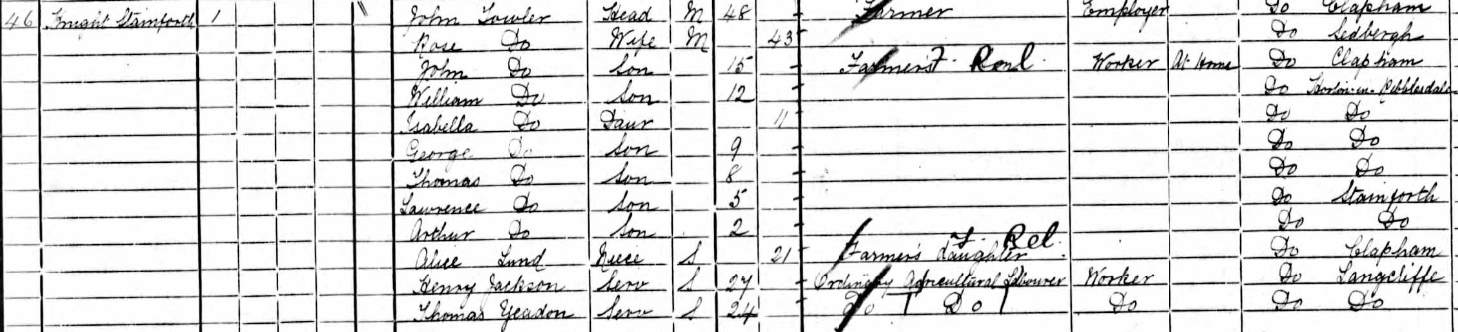 46 Knight Stainforth 1 John Fowler Head M 48 Farmer Employer Do Clapham
Rose Do Wife M 43 Do Sedbergh
John Do Son 15 Farmer's F. Rel. Worker At Home Do Clapham
William Do Son 12 Do Horton-in-Ribblesdale
Isabella Do Daur 11 Do Do
George Do Son 9 Do Do
Thomas Do Son 8 Do Do
Lawrence Do Son 5 Do Stainforth
Arthur Do Son 2 Do Do
Alice Lund Niece S 21 Farmer's daughter F. Rel. Do Clapham
Henry Jackson Serv S 27 Ordinary Agricultural Labourer Worker Do Langcliffe
Thomas Yeadon Serv S 24 Do Do Do Do Do